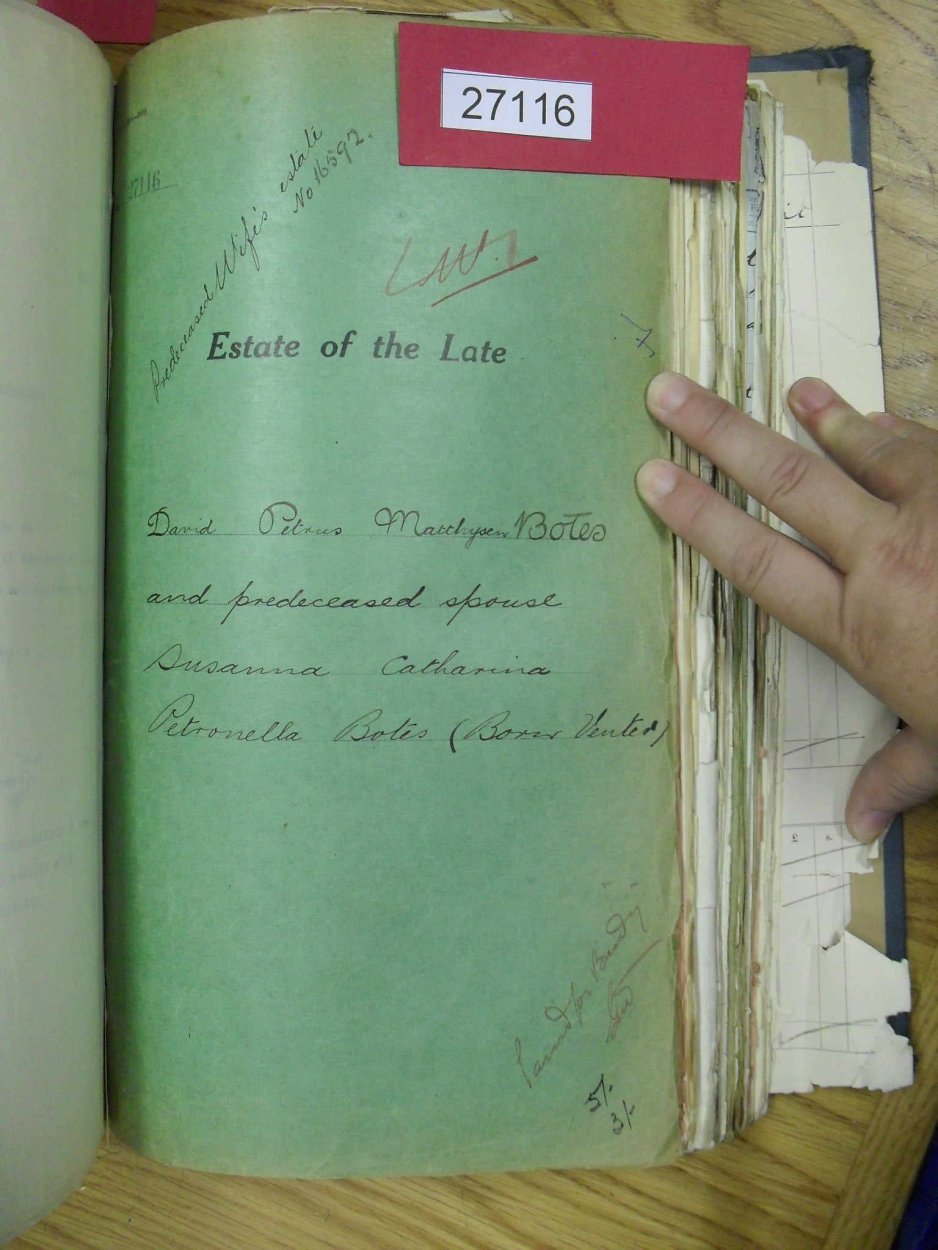 27116
27116
Predeceased Wife's estate
No 16592.
Estate of the Late
David Petrus Matthysen Botes
and predeceased spouse
Susanna Catharina
Petronella Botes (Born Venter)
5/-
3/-
£ s.